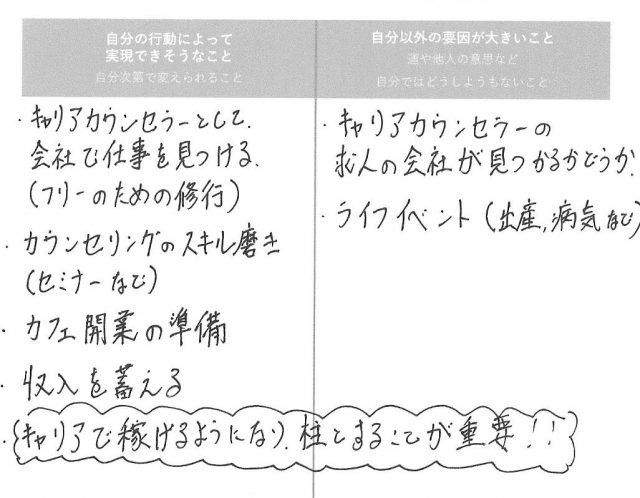 自分の行動によって
実現できそうなこと
自分次第で変えられること
・キャリアカウンセラーとして、
会社で仕事を見つける。
(フリーのための修行)
・カウンセリングのスキル磨き
(セミナーなど)
・カフェ開業の準備
・収入を蓄える
・キャリアで稼げるようになり、柱とすることが重要!!
自分以外の要因が大きいこと
運や他人の意思など
自分ではどうしようもないこと
・キャリアカウンセラーの
求人の会社が見つかるかどうか。
・ライフイベント(出産,病気など)